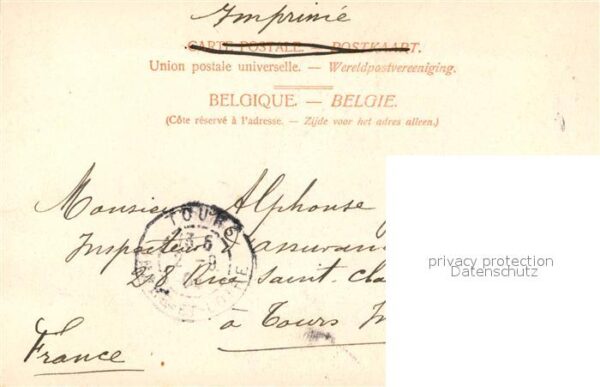 Imprimé
CARTE POSTALE. — POSTKAART.
Union postale universelle. — Wereldpostvereeniging.
BELGIQUE. — BELGIE.
(Côte réservé à l'adresse. — Zijde voor het adres alleen.)
Monsieur Alphonse
Inspecteur d'assuran
28 Rue Saint. Cla
à Tours
France
TOURS
privacy protection
Datenschutz